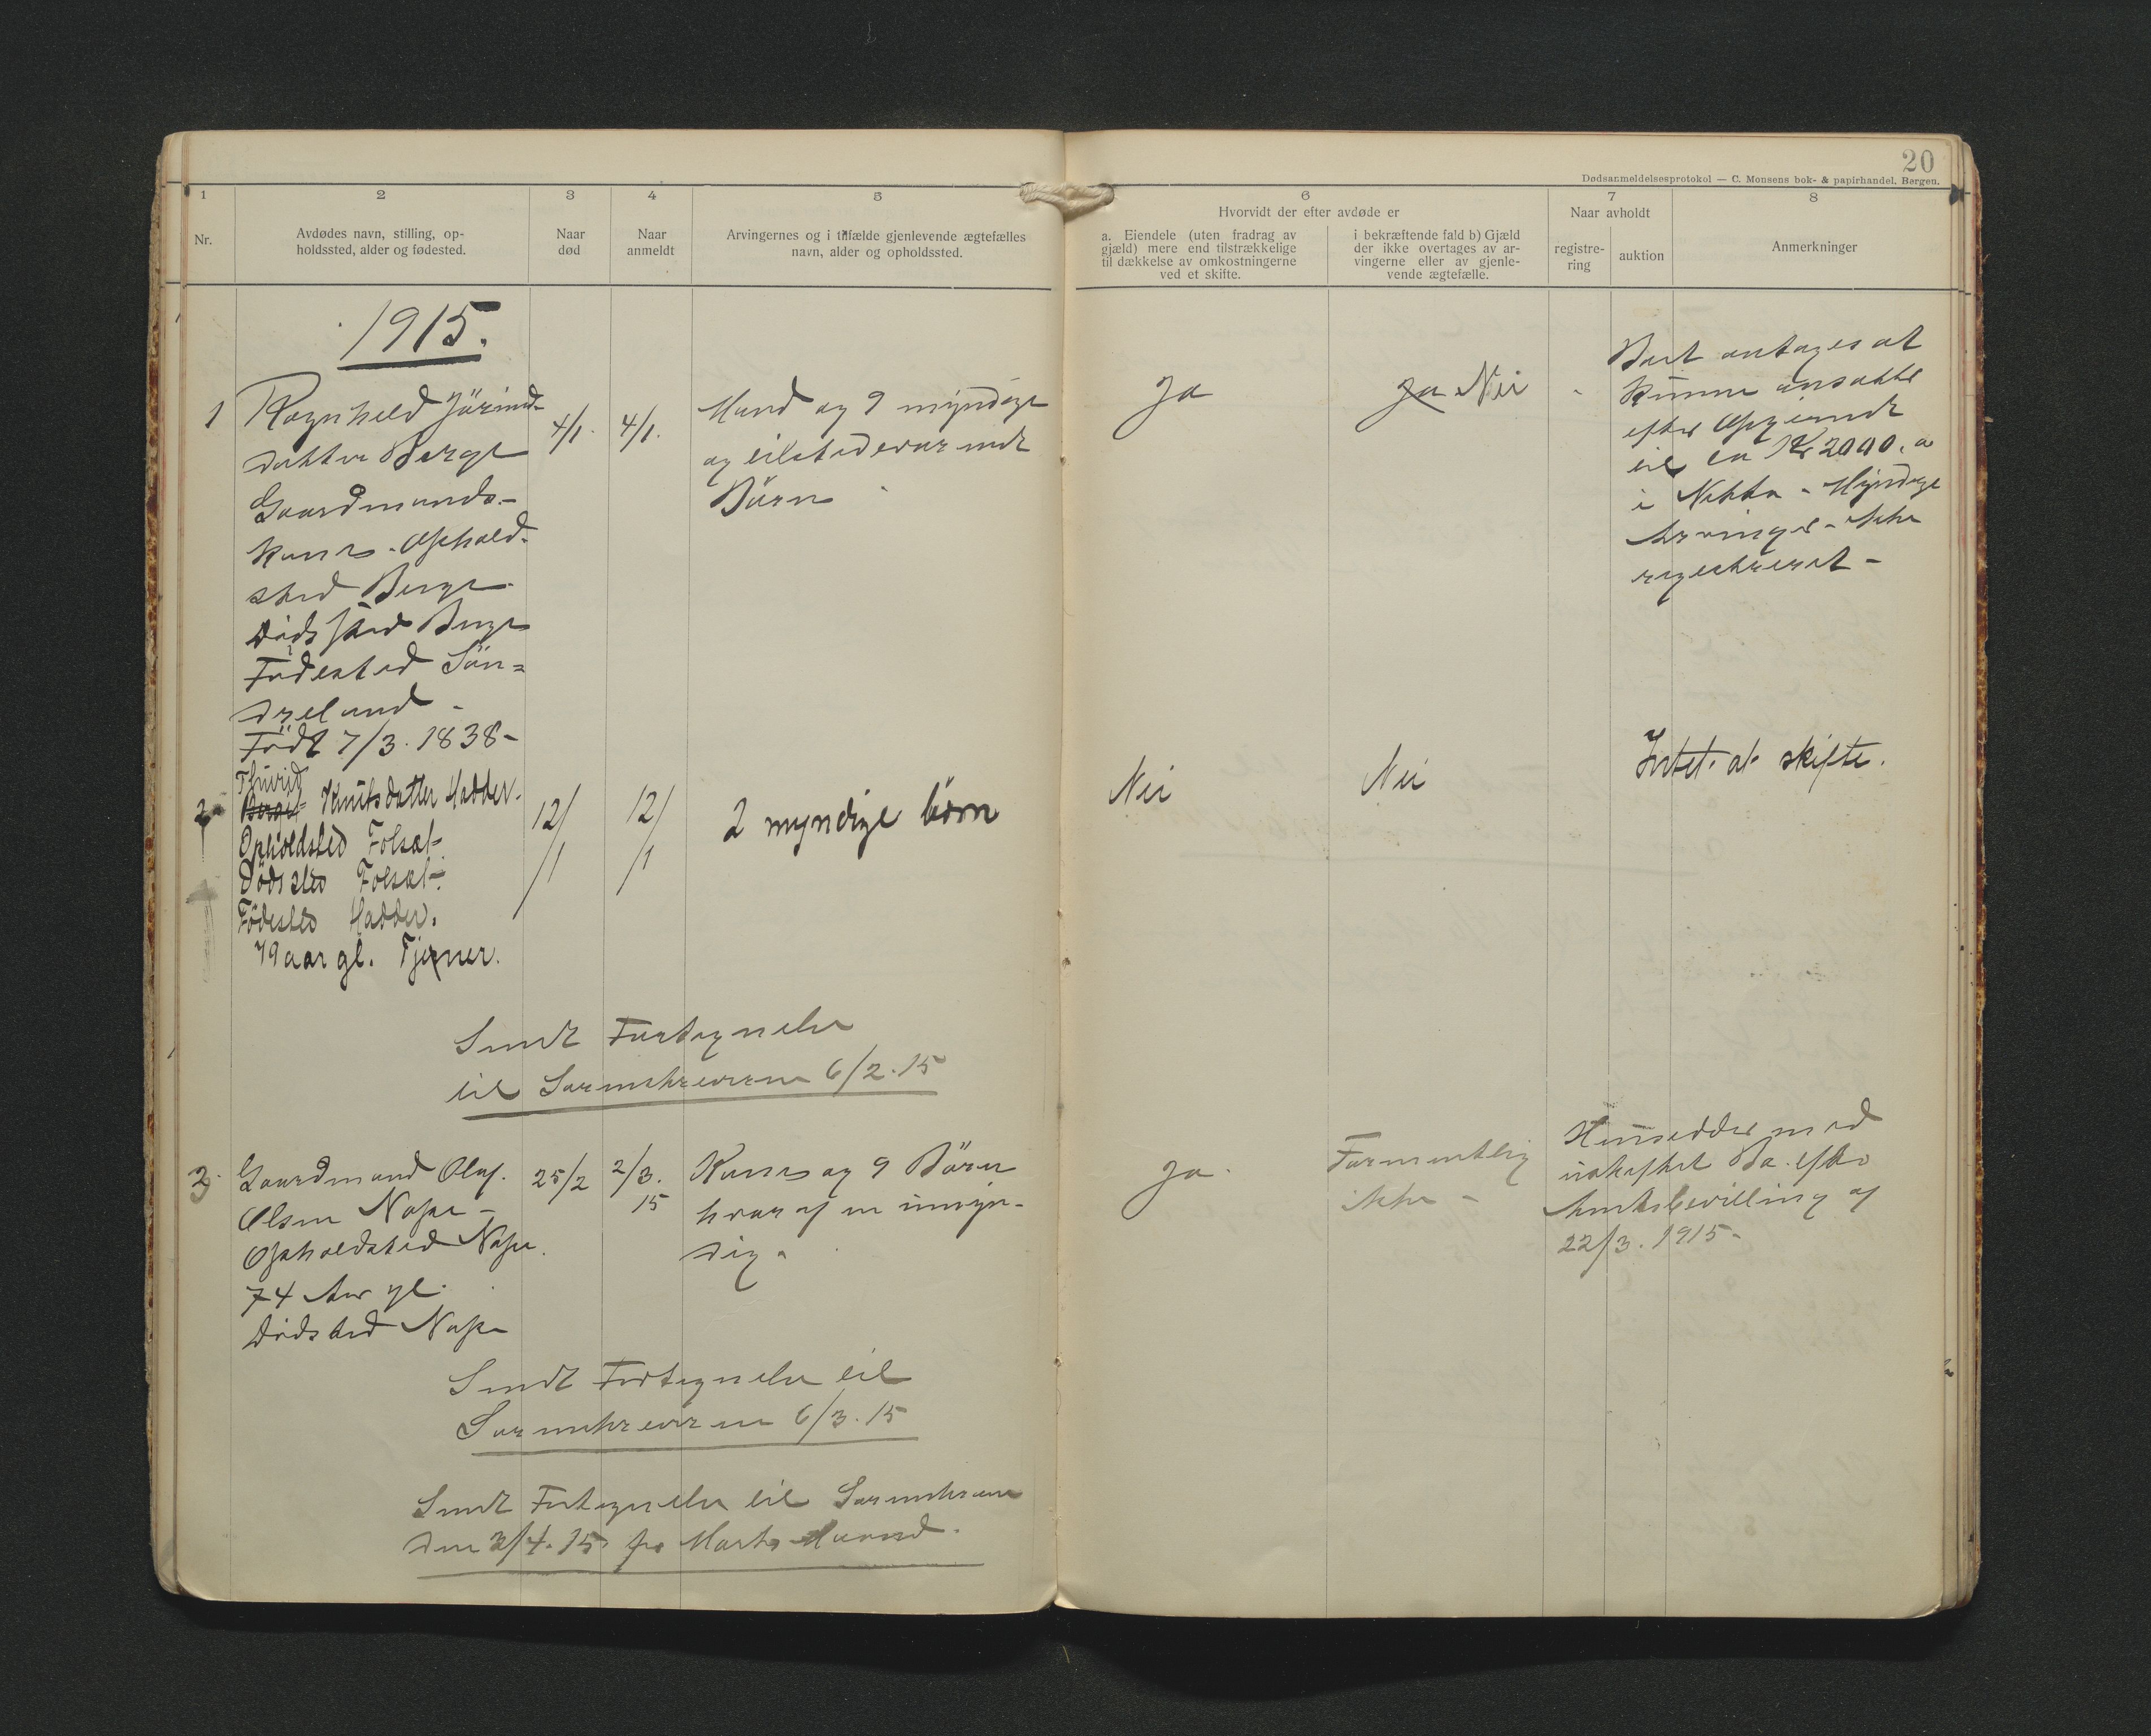 20
Dødsanmeldelsesprotokol — C. Monsens bok- & papirhandel, Bergen.
1
2
3
4
5
6
7
8
Nr.
Avdødes navn, stilling, op-
holdssted, alder og fødested.
Naar
død
Naar
anmeldt
Arvingernes og i tilfælde gjenlevende ægtefælles
navn, alder og opholdssted.
Hvorvidt der efter avdøde er
a. Eiendele (uten fradrag av
gjæld) mere end tilstrækkelige
til dækkelse av omkostningerne
ved et skifte.
i bekræftende fald b) Gjæld
der ikke overtages av ar-
vingerne eller av gjenle-
vende ægtefælle.
Naar avholdt
registre-
ring
auktion
Anmerkninger
1915.
1
Ragnhild
datter Berge
Gaardmands-
kone. Ophold-
sted Berge
Dødssted Berge
Fødested Sön-
dreland -
Född 7/3. 1838 -
4/1.
4/1.
Mand og 9 myndige
og tilstedeværende
Börn
Ja
Ja Nei
Boet antages at
kunne ansættes
efter Opgivende
til ca Kr 2000.
i Netto - Myndige
Arvinger - ikke
registreret -
2
Thurid
Knutsdatter Hadder.
Opholdsted Folsæt.
Dødssted Folsæt.
Fødested Hadder.
79 aar gl.
12/1
12/1
2 myndige børn
Nei
Nei
Intet at skifte.
Sendt Fortegnelse
til Sorenskriveren 6/2. 15
3
Gaardmand Olaf.
Olsen Nape -
Opholdsted Nape.
74 Aar gl.
Dödsted Nape
25/2
2/3.
15
Kone og 9 Börn
hvoraf en umyn-
dig.
Ja.
Formentlig
ikke -
Hensidder med
uskiftet Bo. efter
Amtsbevilling af
22/3. 1915 -
Sendt Fortegnelse til
Sorenskriveren 6/3. 15
Sendt Fortegnelse til Sorenskriveren
den 3/4. 15 for Marts Maaned.